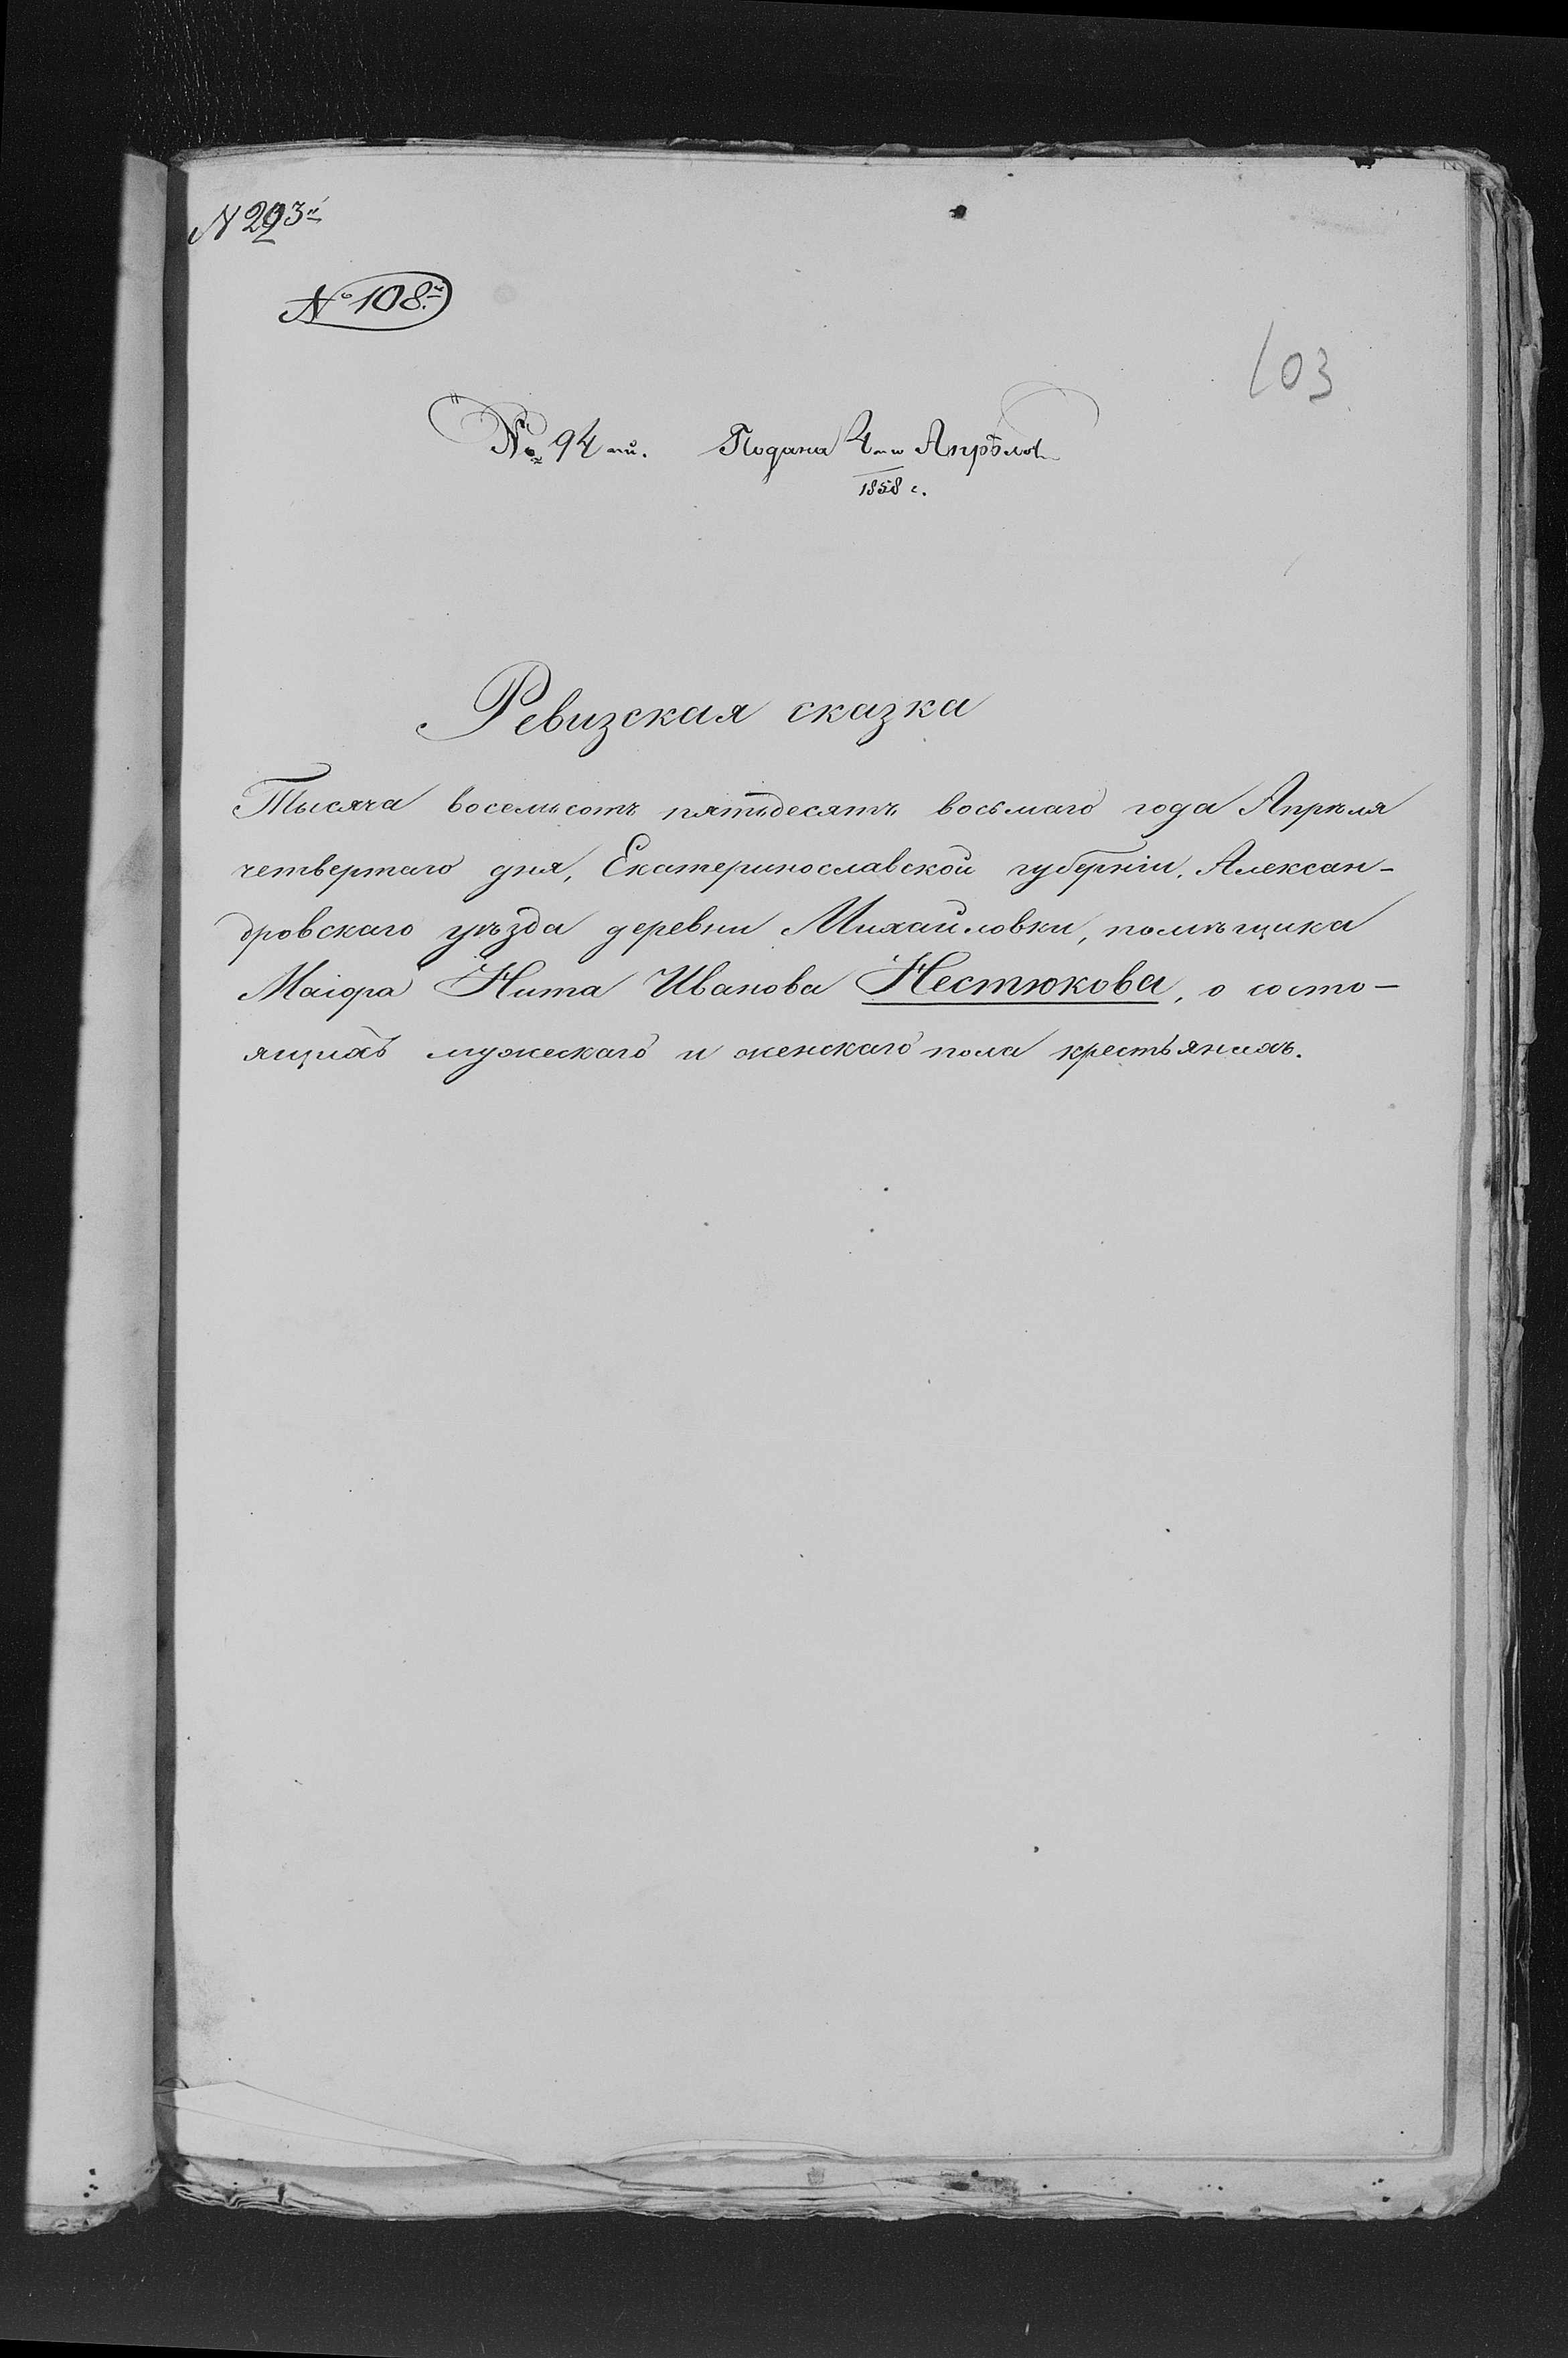 N 293й
№ 108й
103
№ 94ый. Подана 4го Апрѣля
1858 г.
Ревизская сказка
Тысяча восемьсотъ пятьдесятъ восьмаго года Апрѣля
четвертаго дня, Екатеринославской губерніи, Алексан-
дровскаго уѣзда деревни Михайловки, помѣщика
Маіора Нита Иванова Нестюкова, о состо-
ящихъ мужескаго и женскаго пола крестьянахъ.